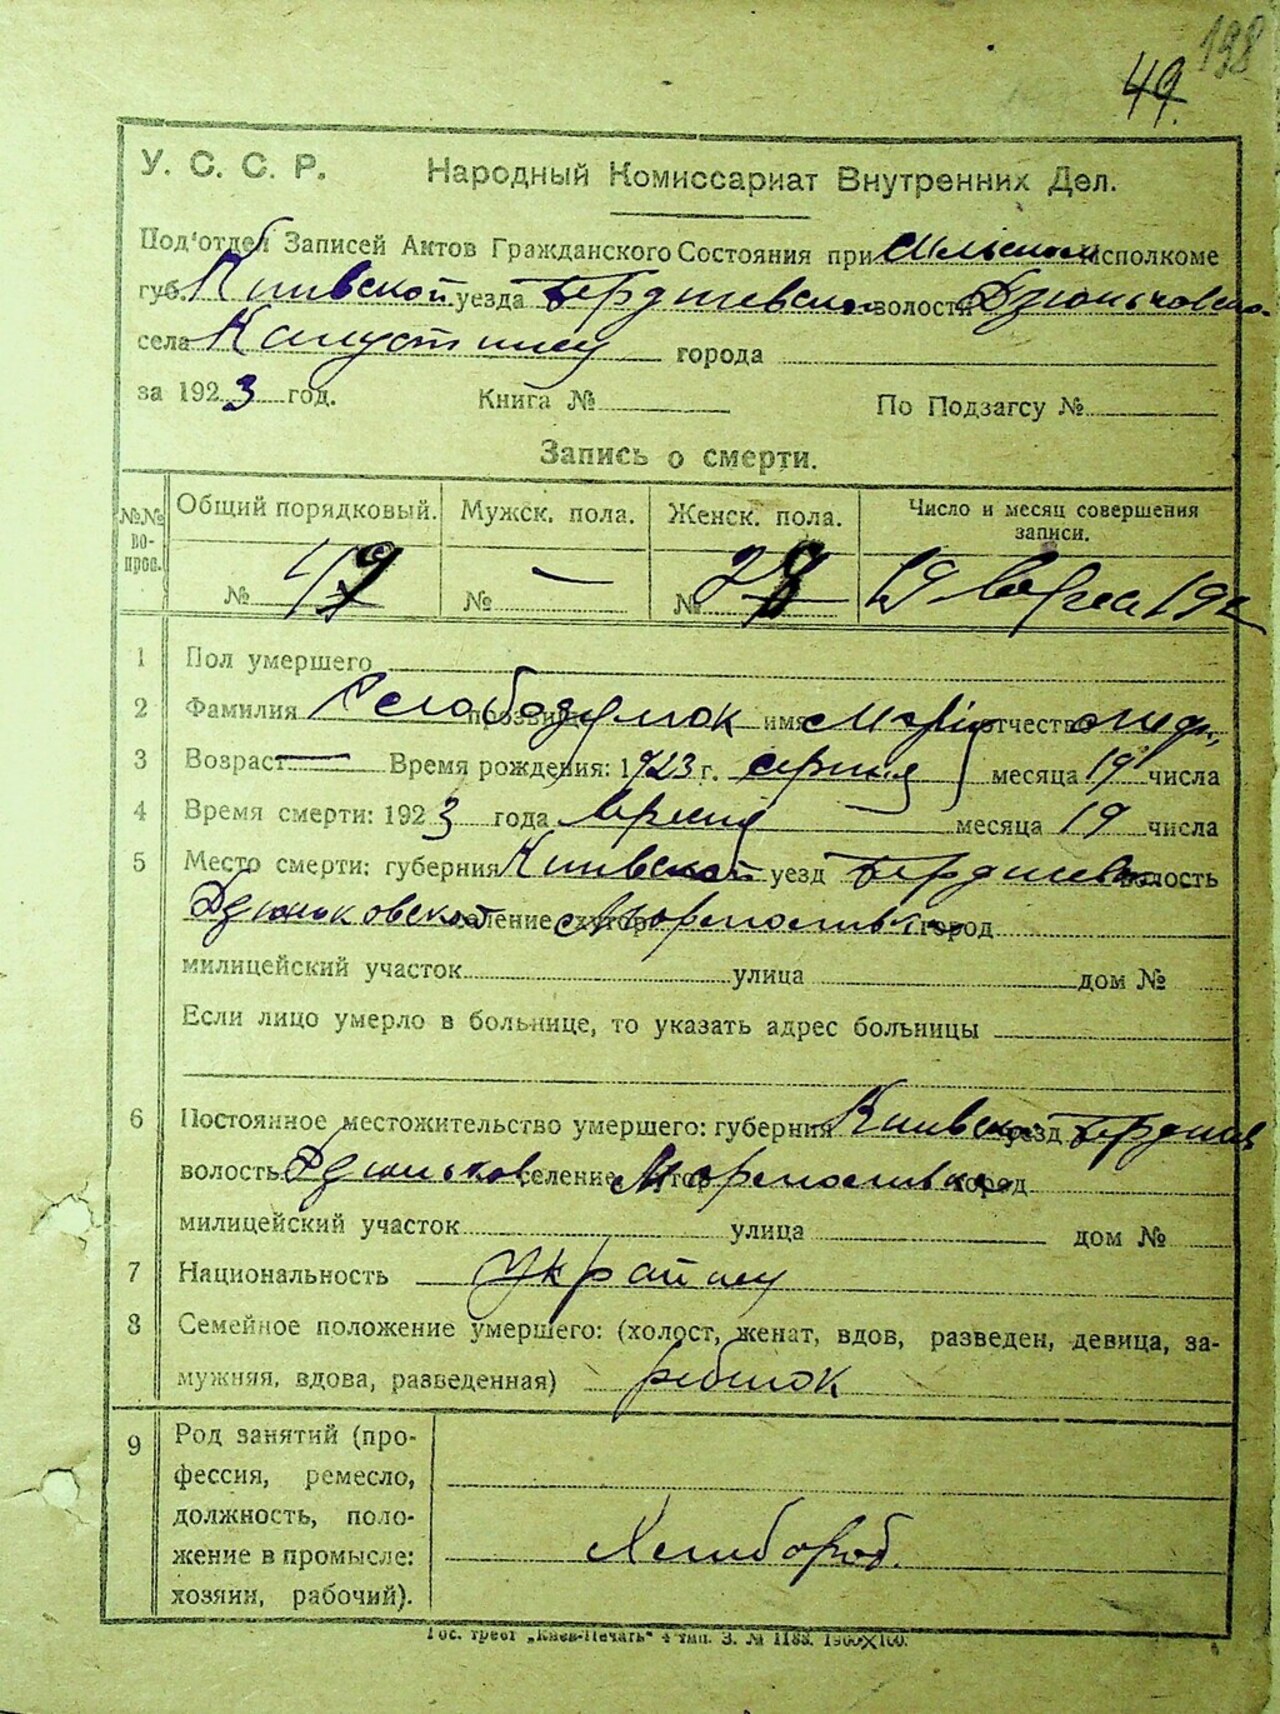 198
49.
У. С. С. Р. Народный Комиссариат Внутренних Дел.
Под'отдел Записей Актов Гражданского Состояния при Сільском исполкоме
губ. Киивской уезда Бердичевском волости Дзюньковско-
села Капустину города
за 1923 год. Книга № По Подзагсу №
Запись о смерти.
№№ вопрос. Общий порядковый. Мужск. пола. Женск. пола. Число и месяц совершения записи.
№ 49 № — № 28 19 192
1 Пол умершего
2 Фамилия прозвище Слободунок имя Марія отчество
3 Возраст — Время рождения: 1923 г. серпня месяца 19 числа
4 Время смерти: 1923 года месяца 19 числа
5 Место смерти: губерния Киивской уезд Бердичев волость
Дзюньковской селение хутор город
милицейский участок улица дом №
Если лицо умерло в больнице, то указать адрес больницы
6 Постоянное местожительство умершего: губерния Киивской уезд Бердичев
волость Дзюньков селение хутор город
милицейский участок улица дом №
7 Национальность Украинец
8 Семейное положение умершего: (холост, женат, вдов, разведен, девица, за-
мужняя, вдова, разведенная) ребинок
9 Род занятий (про-
фессия, ремесло,
должность, поло-
жение в промысле:
хозяин, рабочий).
Хлибороб.
Гос. трест „Киев-Печать" 4 тип. З. № 1188. 1900×100.